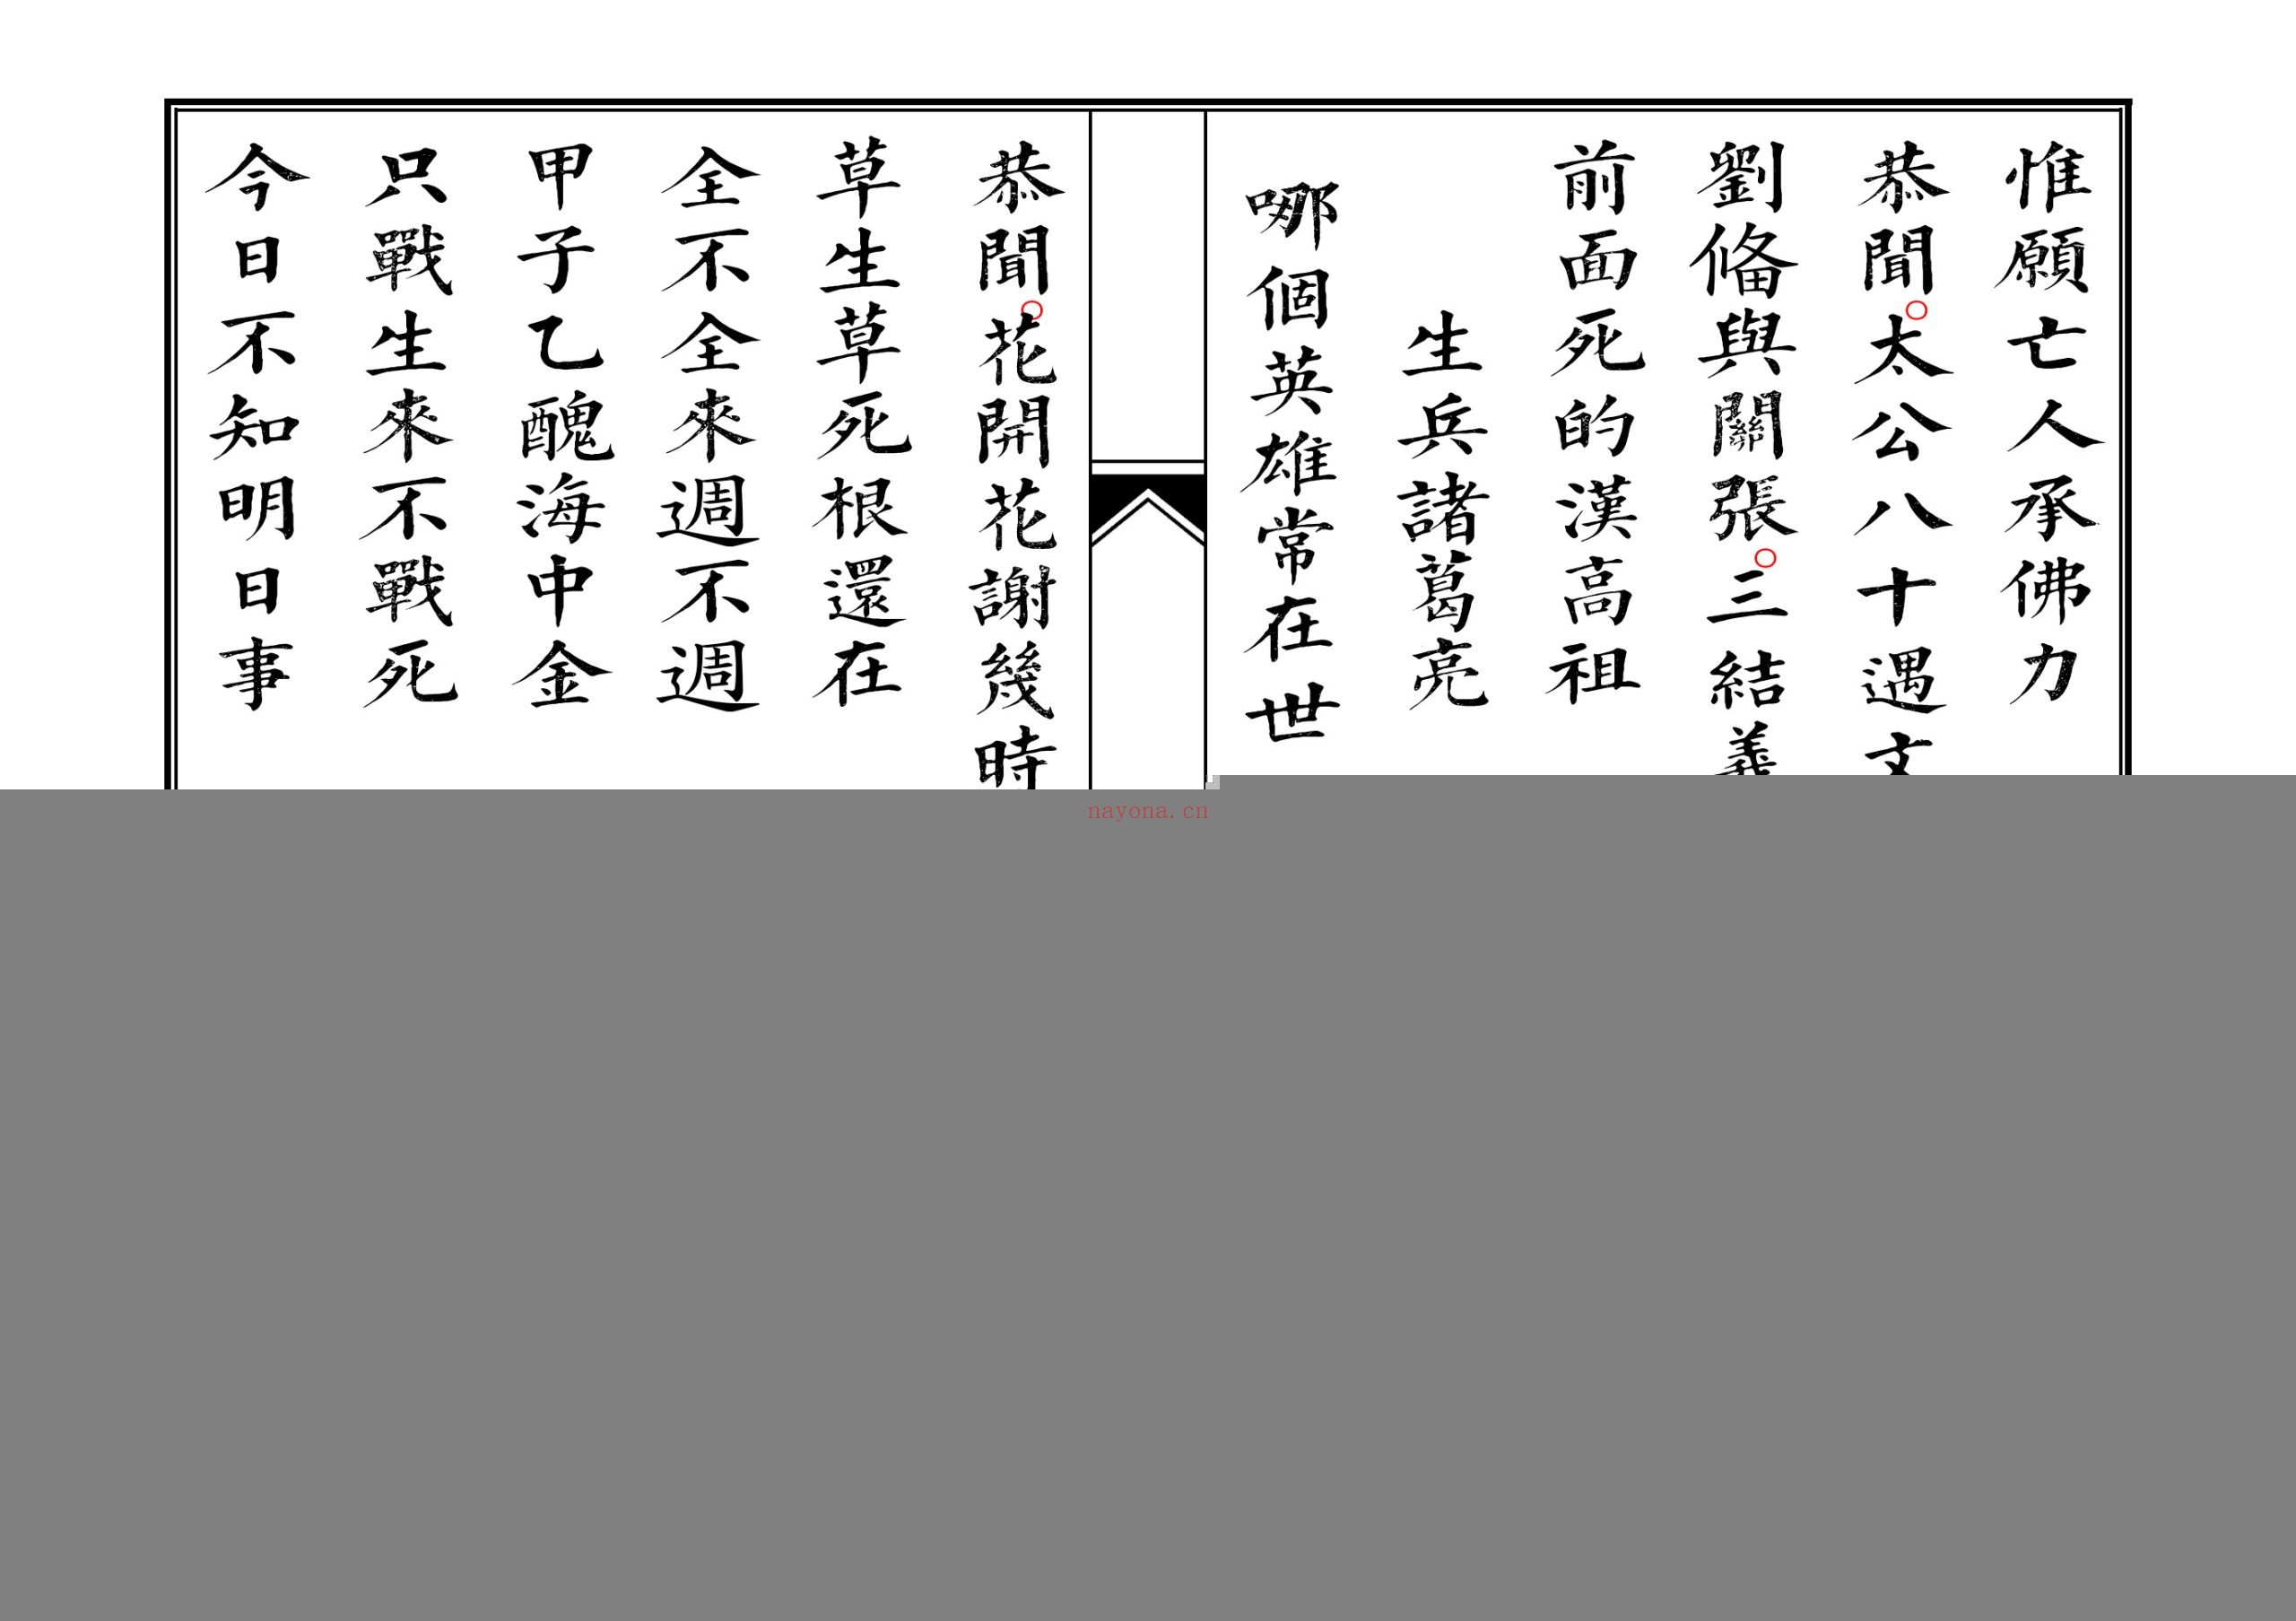 惟願亡人承佛力
恭聞○太公八十遇文
劉俻與關張○三結義
前面死的漢高祖
生兵諸葛亮
哪個英雄常在世
恭聞○花開花謝幾時
草生草死根還在
全不全來週不週
甲子乙醜海中金
只戰生來不戰死
今日不知明日事
nayona.cn